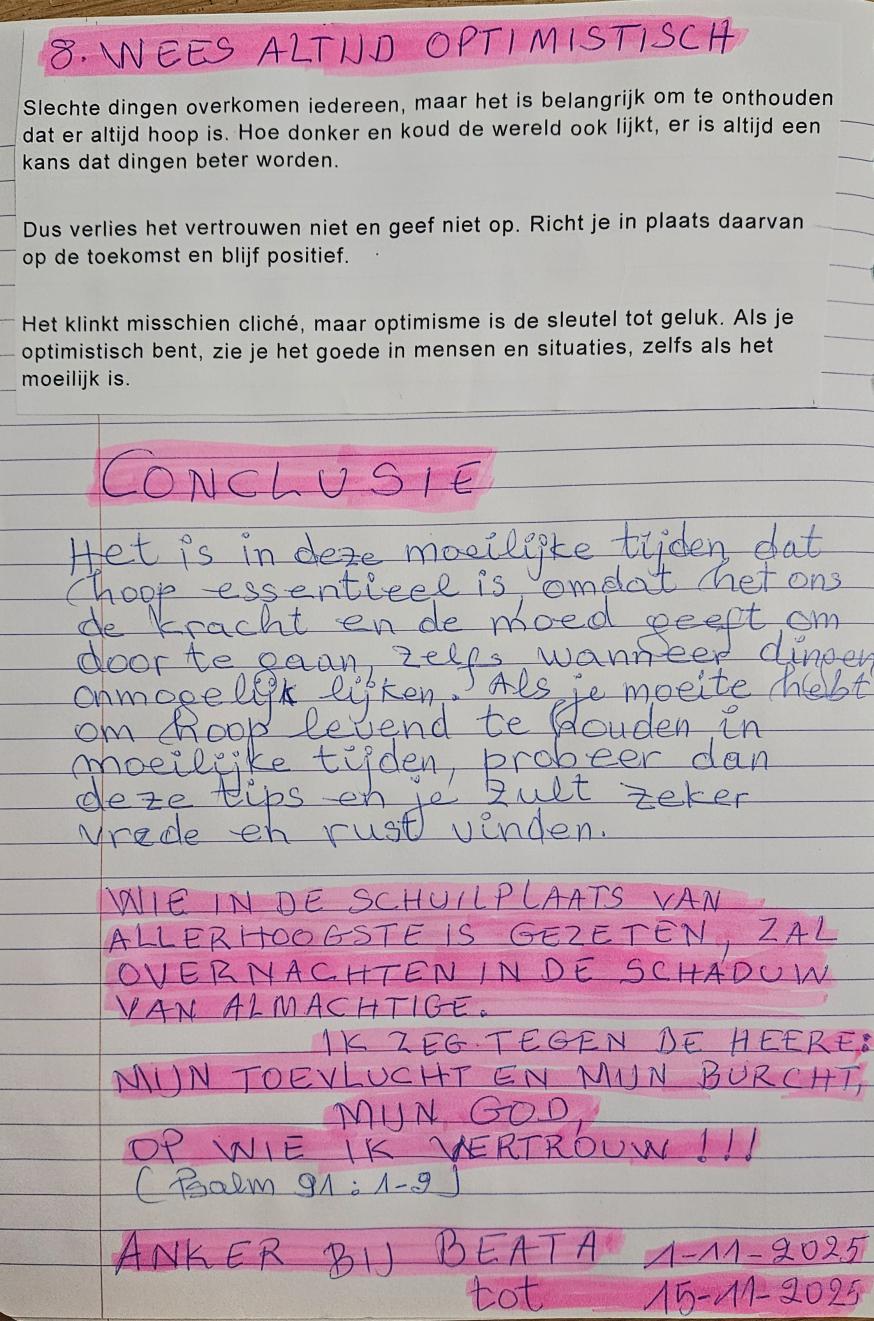 8. WEES ALTIJD OPTIMISTISCH
Slechte dingen overkomen iedereen, maar het is belangrijk om te onthouden
dat er altijd hoop is. Hoe donker en koud de wereld ook lijkt, er is altijd een
kans dat dingen beter worden.
Dus verlies het vertrouwen niet en geef niet op. Richt je in plaats daarvan
op de toekomst en blijf positief.
Het klinkt misschien cliché, maar optimisme is de sleutel tot geluk. Als je
optimistisch bent, zie je het goede in mensen en situaties, zelfs als het
moeilijk is.
CONCLUSIE
Het is in deze moeilijke tijden dat
hoop essentieel is, omdat het ons
de kracht en de moed geeft om
door te gaan, zelfs wanneer dingen
onmogelijk lijken. Als je moeite hebt
om hoop levend te houden in
moeilijke tijden, probeer dan
deze tips en je zult zeker
vrede en rust vinden.
WIE IN DE SCHUILPLAATS VAN
ALLERHOOGSTE IS GEZETEN, ZAL
OVERNACHTEN IN DE SCHADUW
VAN ALMACHTIGE.
IK ZEG TEGEN DE HEERE:
MIJN TOEVLUCHT EN MIJN BURCHT,
MIJN GOD,
OP WIE IK VERTROUW !!!
(Psalm 91:1-9)
ANKER BIJ BEATA 1-11-2025
tot 15-11-2025